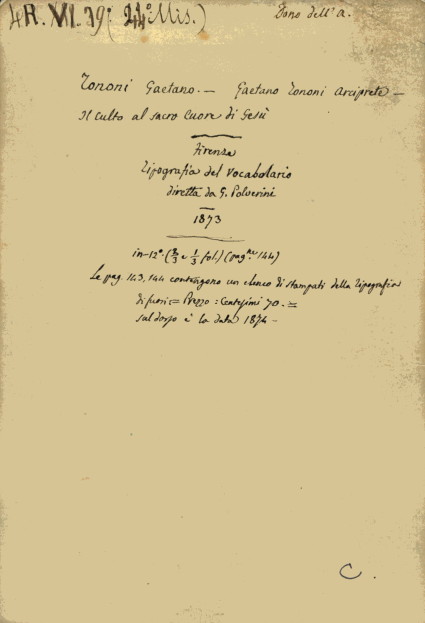 4R. VI. 39 (24º Mis.)
Dono dell' a.
Tononi Gaetano. — Gaetano Tononi Arciprete —
Il Culto al sacro Cuore di Gesù
Firenze
Tipografia del Vocabolario
diretta da G. Polverini
1873
in-12º. ( e 1/3 fol.) (pagne 144)
Le pag. 143, 144 contengono un elenco di stampati della Tipografia
di fuori = Prezzo : Centesimi 70. =
sul dorso è la data 1874 –
C.